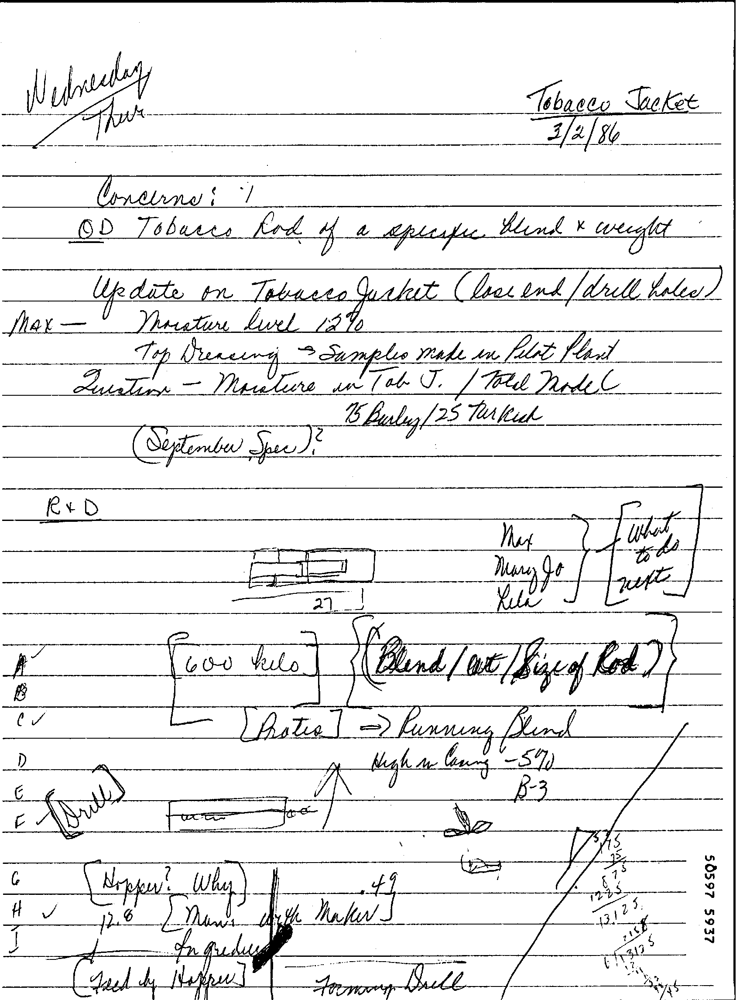 Wednesday
Thur
Tobacco Jacket
3/2/86
Concerns:
OD Tobacco Rod of a specific blend & weight
Update on Tobacco Jacket (lose end / drill holes)
MAX — Moisture level 12%
Top Dressing → Samples made in Pilot Plant
Question — Moisture in Tob J. / Total Model
75 Burley / 25 Turkish
(September Spec)?
R & D
Max
Mary Jo
Lela
What
to do
next
27
A ✓
[600 kilo] {(Blend / cut / Size of Rod)}
B
C ✓
[Protos] ⇒ Running Blend
D
High in Casing -5%
E
B-3
F ✓ [Drill]
G [Hopper? Why] .49
H ✓ 12.8 Maker]
I
(Feed by Hopper]
Forming Drill
175
75
875
1225
13125
50597 5937